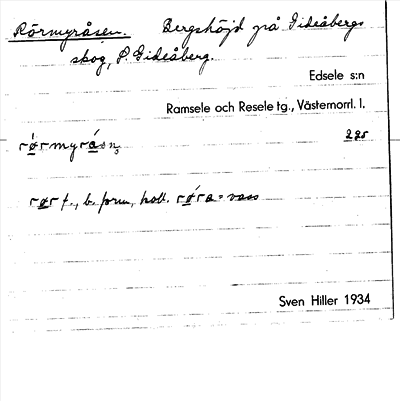 Rörmyråsen. Bergshöjd på Gideåbergs
skog, S. Gideåberg.
Edsele s:n
Ramsele och Resele tg., Västernorrl. l.
rǿrmyråsn̥ 225
rør f., b. form, koll. rǿra = vass
Sven Hiller 1934